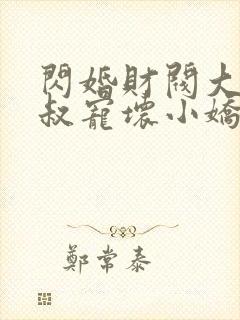 閃婚財閥大
叔寵壞小嬌
鄭常泰